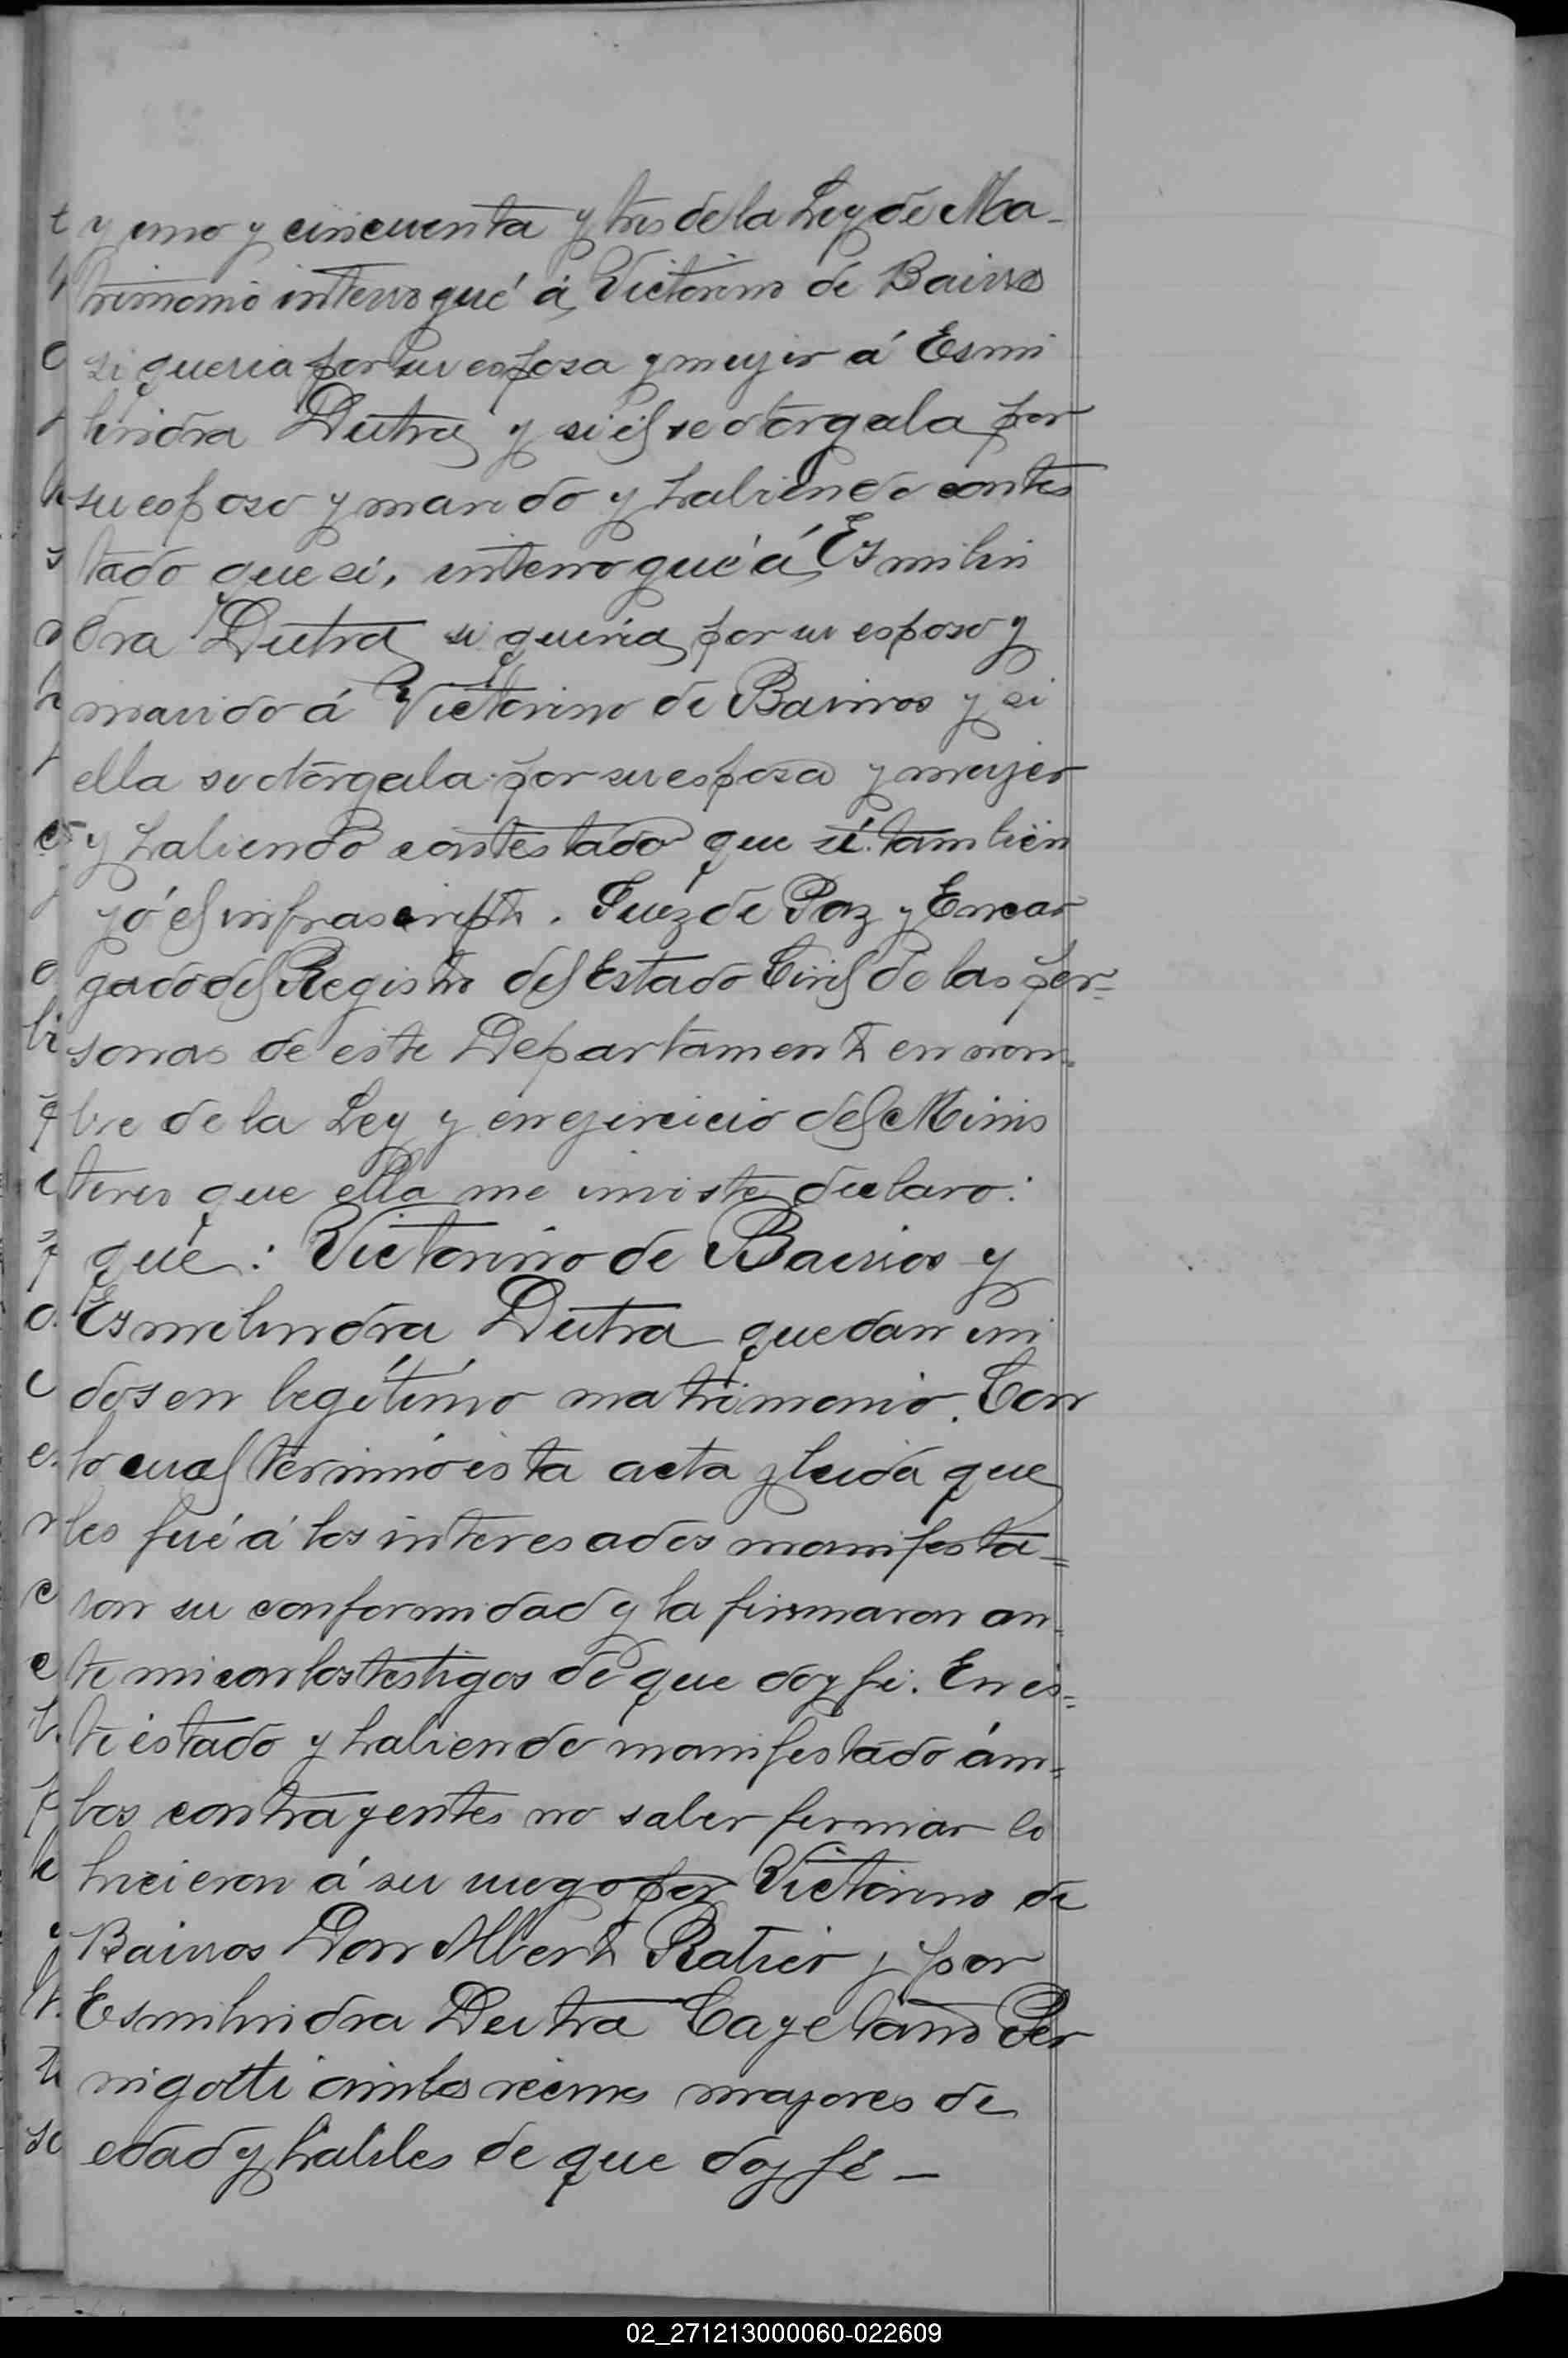 y uno y cincuenta y tres de la Ley de Ma-
trimonio interrogué á Victorino de Bairros
si queria por su esposa y mujer á Esmi
lindra Dutra y si él se otorgala por
su esposo y marido y habiendo contes
tado que si, interrogué á Esmilin
dra Dutra si queria por su esposo y
marido á Victorino de Bairros y si
ella se otorgala por su esposa y mujer
y habiendo contestado que sí tambien
yó el infrascripto. Juez de Paz y Encar
gado del Registro del Estado Civil de las per=
sonas de este Departamento en nom=
bre de la Ley y en ejercicio del Minis
terio que ella me inviste declaro:
que: Victorino de Bairros y
Esmelindra Dutra quedan uni
dos en legítimo matrimonio. Con
lo cual terminó esta acta y leida que
les fué á los interesados manifesta=
ron su conformidad y la firmaron an=
te mi con los testigos de que doy fé. En es=
te estado y habiendo manifestado ám=
bos contrayentes no saber firmar lo
hicieron á su ruego por Victorino de
Bairros Don Alberto Ratier y por
Esmilindra Dutra Cayetano Per
nigotti ambos vecinos mayores de
edad y habiles de que doy fé —
02_271213000060-022609